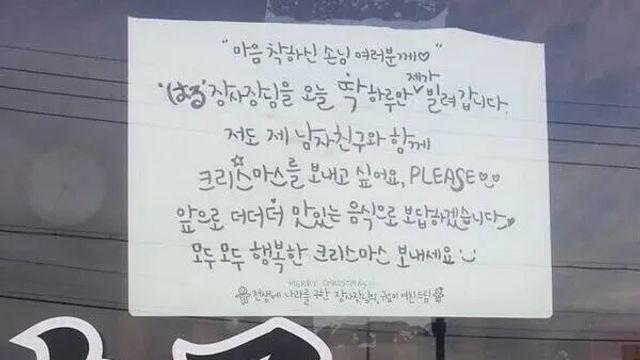 "마음 착하신 손님 여러분께♡"
'はる' 장사장님을 오늘 딱 하루만 제가 빌려 갑니다.
저도 제 남자친구와 함께
크리스마스를 보내고 싶어요, PLEASE
앞으로 더더더 맛있는 음식으로 보답하겠습니다
모두모두 행복한 크리스마스 보내세요
MERRY CHRISTMAS
전생에 나라를 구한 장사장님의 여친드림